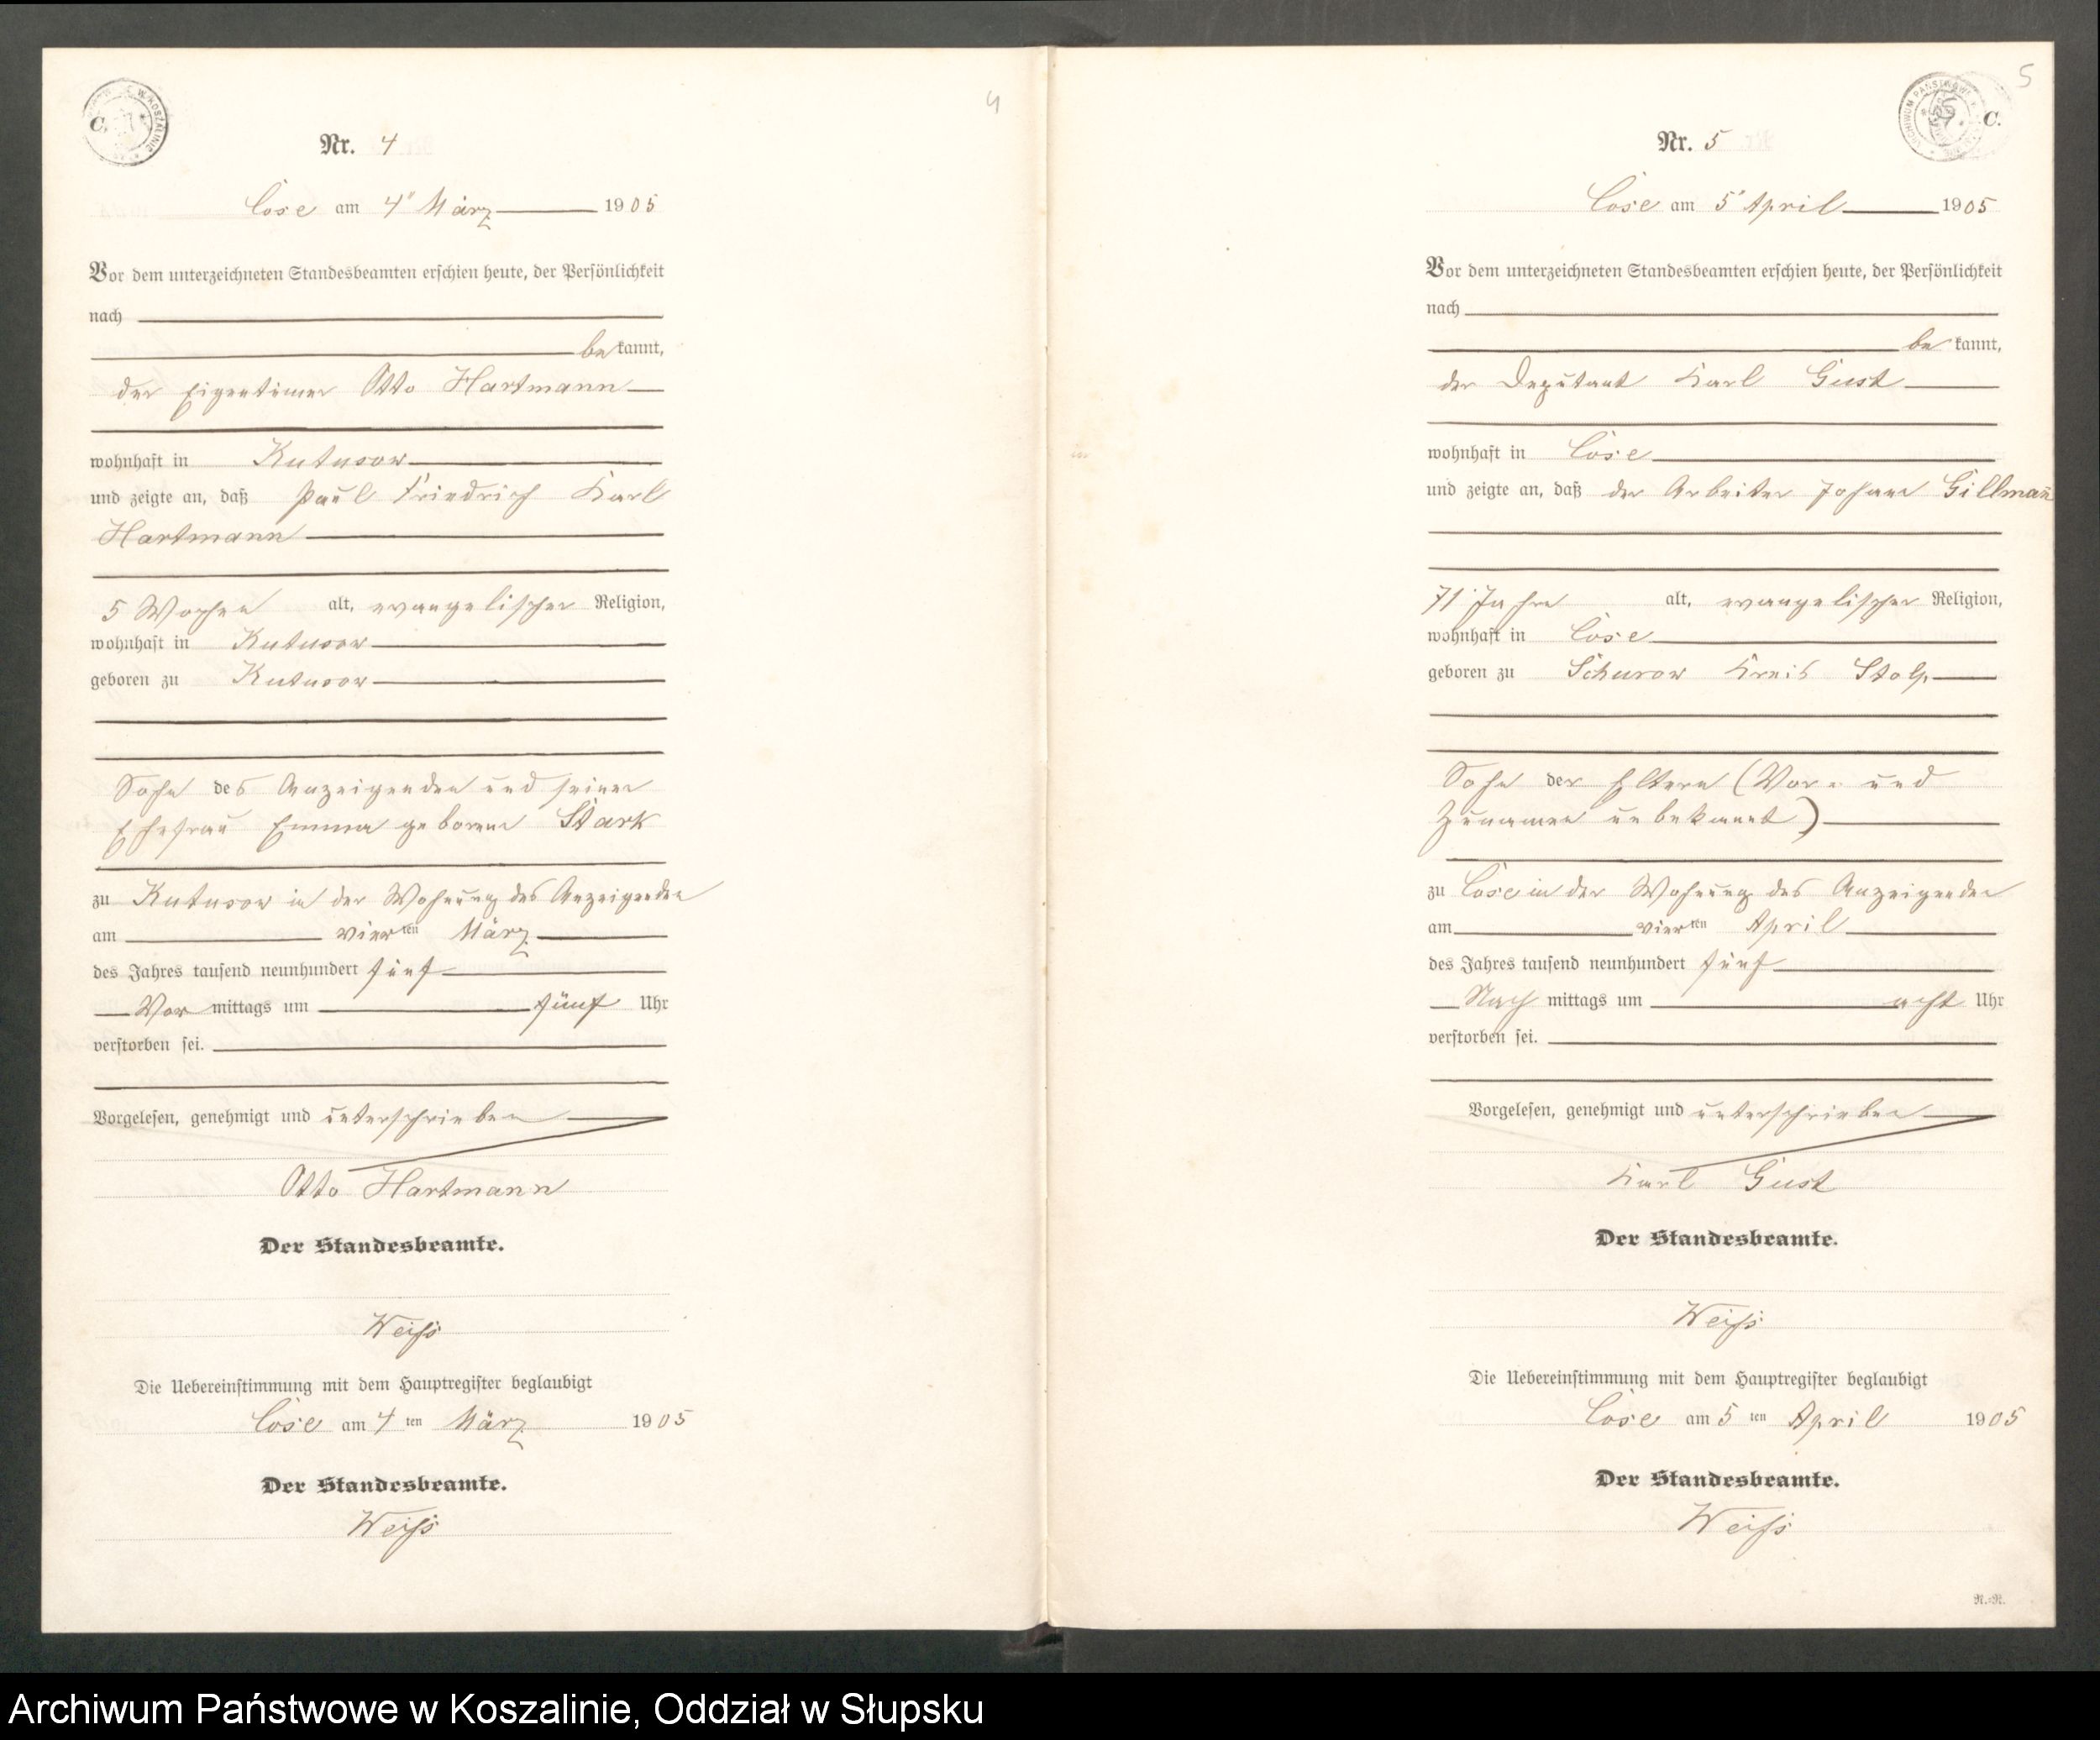 4
C.
Nr. 4
Cose am 4" März 1905
Vor dem unterzeichneten Standesbeamten erschien heute, der Persönlichkeit
nach
bekannt,
der Eigentümer Otto Hartmann
wohnhaft in Kutusow
und zeigte an, daß Paul Friedrich Karl
Hartmann
5 Wochen alt, evangelischer Religion,
wohnhaft in Kutusow
geboren zu Kutusow
Sohn des Anzeigenden und seiner
Ehefrau Emma geborene Stark
zu Kutusow in der Wohnung des Anzeigenden
am vierten März
des Jahres tausend neunhundert fünf
Vor mittags um fünf Uhr
verstorben sei.
Vorgelesen, genehmigt und unterschrieben
Otto Hartmann
Der Standesbeamte.
Weiß
Die Uebereinstimmung mit dem Hauptregister beglaubigt
Cose am 4 ten März 1905
Der Standesbeamte.
Weiß
5
C.
Nr. 5
Cose am 5" April 1905
Vor dem unterzeichneten Standesbeamten erschien heute, der Persönlichkeit
nach
bekannt,
der Deputant Karl Gust
wohnhaft in Cose
und zeigte an, daß der Arbeiter Johann Gillman̄
71 Jahre alt, evangelischer Religion,
wohnhaft in Cose
geboren zu Schurow Kreis Stolp
Sohn der Eltern (Vor- und
Zunamen unbekannt)
zu Cose in der Wohnung des Anzeigenden
am vierten April
des Jahres tausend neunhundert fünf
Nach mittags um acht Uhr
verstorben sei.
Vorgelesen, genehmigt und unterschrieben
Karl Gust
Der Standesbeamte.
Weiß
Die Uebereinstimmung mit dem Hauptregister beglaubigt
Cose am 5 ten April 1905
Der Standesbeamte.
Weiß
R.=R.
Archiwum Państwowe w Koszalinie, Oddział w Słupsku